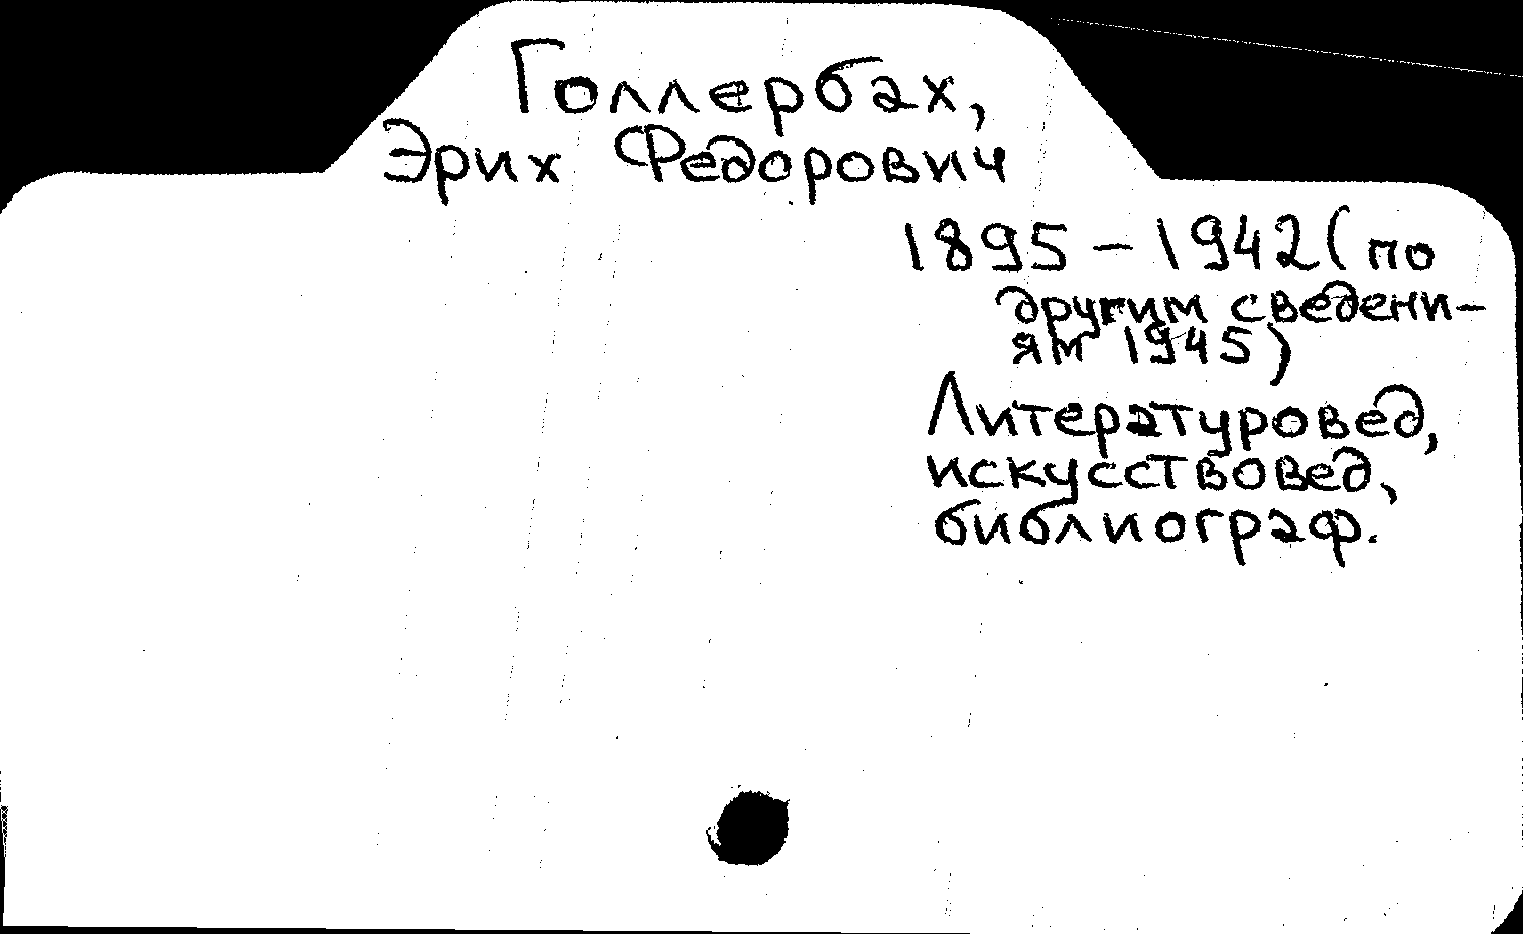 Голлербах,
Эрих Федорович
1895-1942 (по
другим сведени-
ям 1945)
Литературовед,
искусствовед,
библиограф.